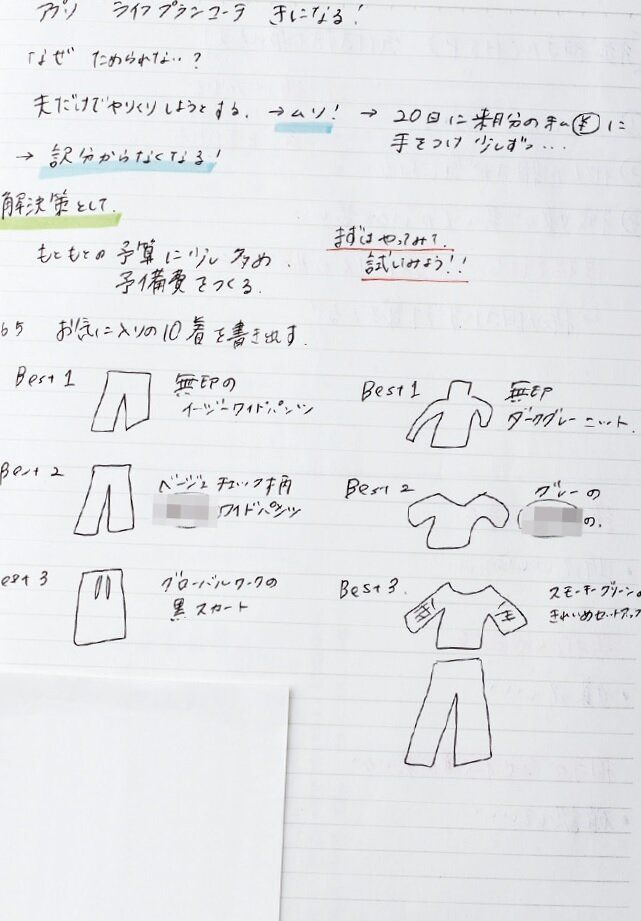 アプリ ライフプランコーチ きになる！
なぜ ためられない・・？
夫だけでやりくりしようとする。→ムリ！ → 20日に来月分の
手をつけ 少しずつ・・・
→ 訳分からなくなる！
解決策として
もともとの予算に少し多め
予備費をつくる。
まずはやってみて。
試してみよう！！
お気に入りの10着を書き出す。
Best 1 無印の
イージーワイドパンツ
Best 1 無印
ダークグレーニット。
Best 2 ベージュチェック柄
ワイドパンツ
Best 2 グレーの
の。
est 3 グローバルワークの
黒スカート
Best 3. スモーキーグリーンの
きれいめセットアップ